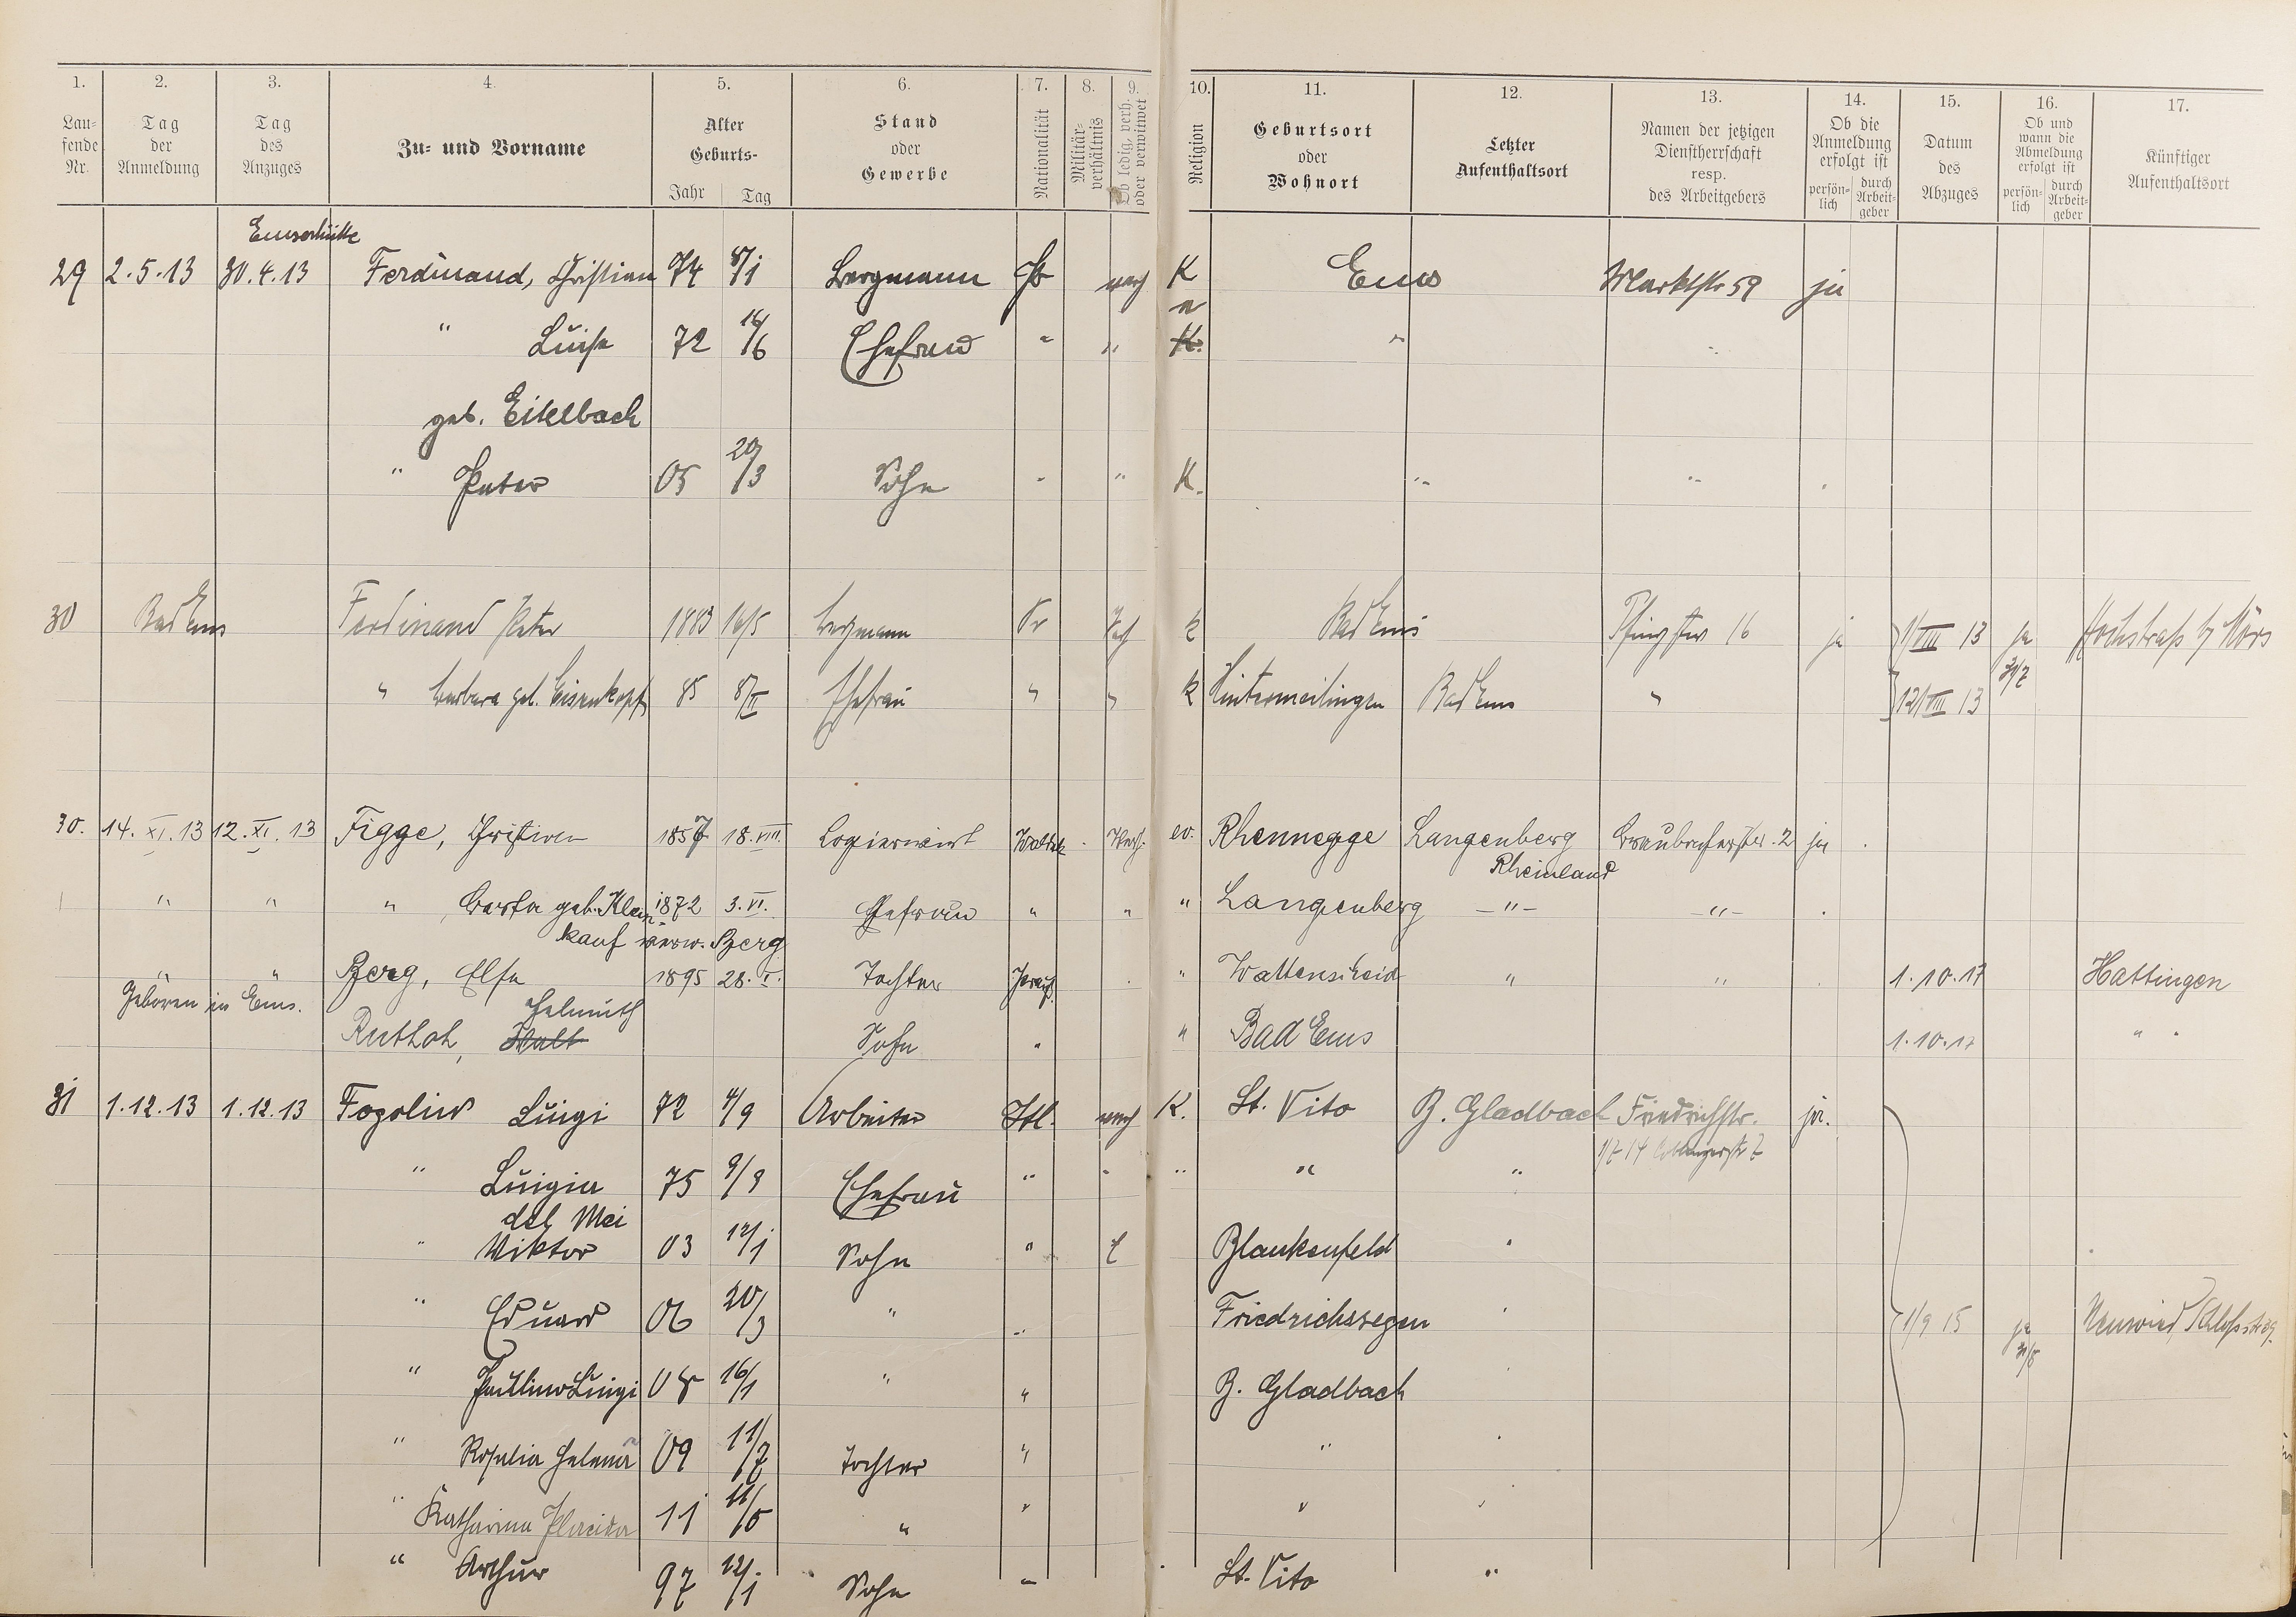 1. 2. 3. 4. 5. 6. 7. 8. 9. 10. 11. 12. 13. 14. 15. 16. 17.
Lau-
fende
Nr.
Tag
der
Anmeldung
Tag
des
Anzuges
Zu- und Vorname
Alter
Geburts-
Jahr Tag
Stand
oder
Gewerbe
Nationalität
Militär-
verhältnis
Ob ledig, verh.
oder verwitwet
Religion
Geburtsort
oder
Wohnort
Letzter
Aufenthaltsort
Namen der jetzigen
Dienstherrschaft
resp.
des Arbeitgebers
Ob die
Anmeldung
erfolgt ist
persön-
lich
durch
Arbeit-
geber
Datum
des
Abzuges
Ob und
wann die
Abmeldung
erfolgt ist
persön-
lich
durch
Arbeit-
geber
Künftiger
Aufenthaltsort
Emserhütte
29 2.5.13 30.4.13 Ferdinand, Christian 74 8/1 Bergmann verh K Ems Marktstr 59 ja
" Luise 72 16/6 Ehefrau " " K. " "
geb. Eikelbach
" Peter 05 20/3 Sohn " " K. " "
30 Bad Ems Ferdinand Peter 1883 16/5 Bergmann Pr Verh k Bad Ems 16 ja 1/VIII 13 ja Hochstraß b/ Mörs
31/7
" Barbara geb. Eisenkopf 85 8/II Ehefrau " " k Hintermeilingen Bad Ems " 12/VIII 13
30. 14.XI.13 12.XI.13 Figge, Christian 1857 18.VIII. Logierwirt Waldek Verh. ev. Rhennegge Langenberg Braubacherstr. 2 ja
Rheinland
" " " Berta geb. Klein 1872 3.VI. Ehefrau " " " Langenberg -"- -"-
kauf verw. Berg
" " Berg, Else 1895 28.V. Tochter Preuß. " Wattenscheid " " 1.10.17 Hattingen
Geboren in Ems. Helmuth
Sohn " " Bad Ems 1.10.17 " "
31 1.12.13 1.12.13 Fogolin Luigi 72 4/9 Arbeiter Itl. verh K. St. Vito B. Gladbach Friedrichstr. ja.
" Luigia 75 9/9 Ehefrau " " " " "
del Mei
" Viktor 03 12/1 Sohn " l Blankenfeld "
" Eduard 06 20/3 " " Friedrichssegen " 1/9 15 ja Neuwied
31/8
" Paulino Luigi 08 16/1 " " B. Gladbach
" Rosalia Helena 09 11/7 Tochter " " "
" Katharina Placida 11 11/5 " " " "
" Arthur 97 12/1 Sohn " St. Vito "